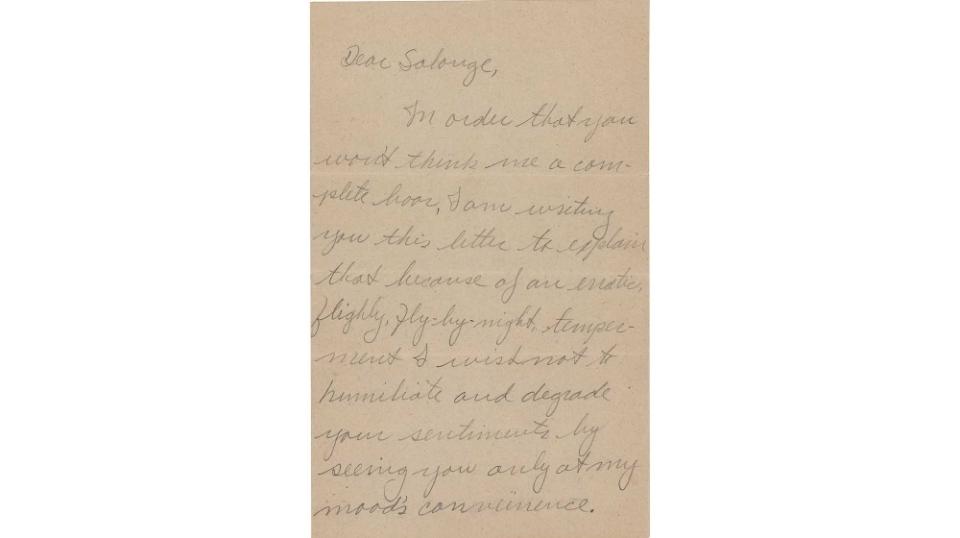 Dear Salonge,
In order that you
won't think me a com-
plete boor, I am writing
you this letter to explain
that because of an erratic,
flighly, fly-by-night, temper-
ment I wish not to
humiliate and degrade
your sentiments by
seeing you only at my
mood's conveinence.